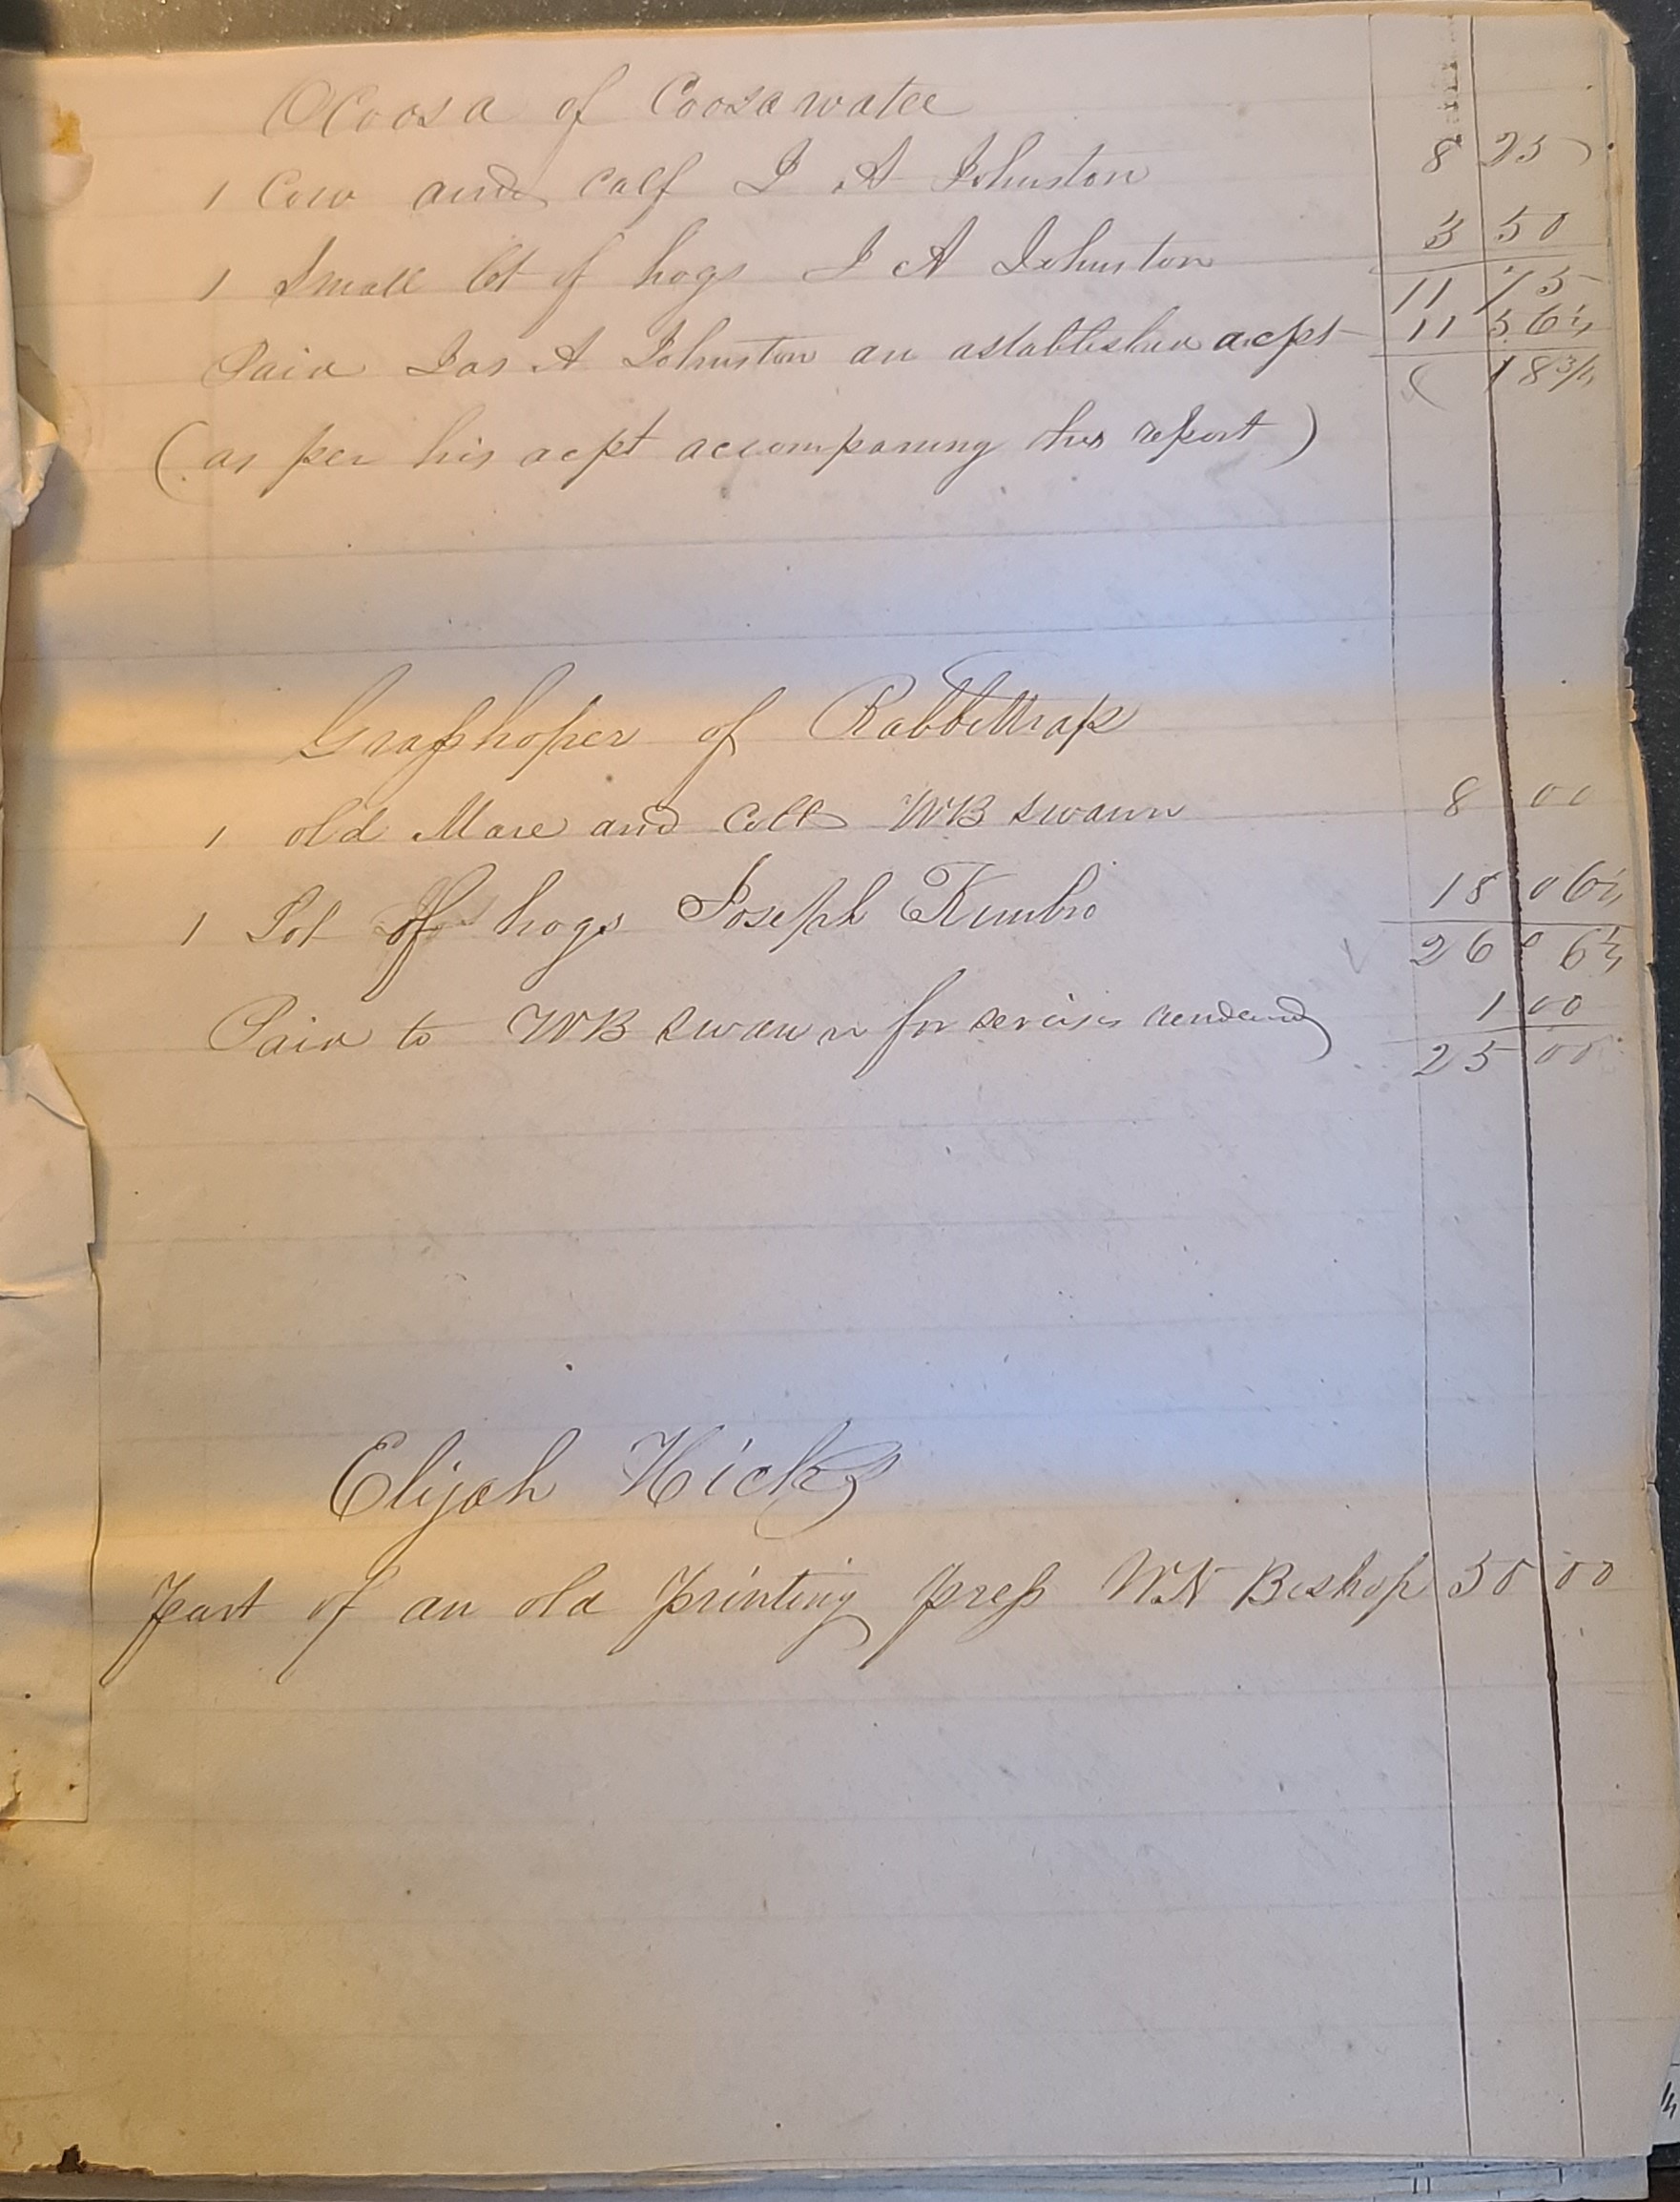 Ocoosa of Coosawatee
1 Cow and Calf J A Johnston 8 25
1 Small lot of hogs J A Johnston 3 50
11 75
Paid Jas A Johnston an astablished acpt 11 56¼
18¾
(as per his acpt accompaning this report)
Grasshoper of Rabbittrap
1 old Mare and Colt WB Swann 8 00
1 Lot of hogs Joseph Kimbro 18 06¼
26 06¼
Paid to WB Swann for servises rendered 1 00
25 00
Elijah Hicks
Part of an old Printing press WN Bishop 50 00